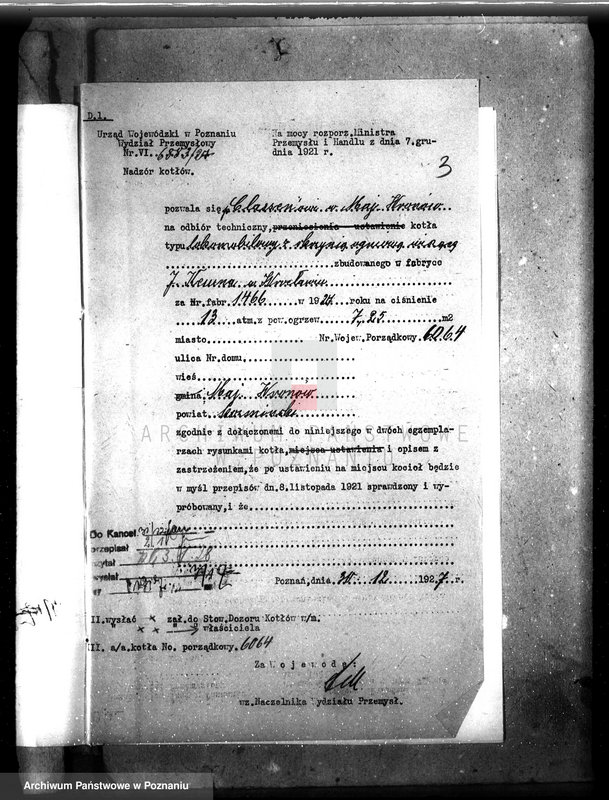 D.1.
Urząd Wojewódzki w Poznaniu
Wydział Przemysłowy
Nr.VI. 6583/27
Nadzór kotłów.
Na mocy rozporz.Ministra
Przemysłu i Handlu z dnia 7.gru-
dnia 1921 r.
3
pozwala się w Maj.
na odbiór techniczny,przeniesienie - ustawienie kotła
typu
zbudowanego w fabryce
w Wrocławiu
za Nr.fabr.1466 w 1927 roku na ciśnienie
13 atm.z pow.ogrzew. 7,25 m2
miasto Nr.Wojew.Porządkowy.6064
ulica Nr.domu
wieś
gmina, Maj.
powiat
zgodnie z dołączonemi do niniejszego w dwóch egzempla-
rzach rysunkami kotła,miejsca ustawienia i opisem z
zastrzeżeniem,że po ustawieniu na miejscu kocioł będzie
w myśl przepisów dn.8.listopada 1921 sprawdzony i wy-
próbowany,i że
Do Kancel.
przepisał
czytał
wysłał
Poznań,dnia 30. 12 1927 r.
II.wysłać x zał.do Stow.Dozoru Kotłów w/m.
" x x właściciela
III. a/a.kotła No. porządkowy.6064
Za Wojewodę:
wz.Naczelnika Wydziału Przemysł.
ARCHIWUM PAŃSTWOWE
W POZNANIU
Archiwum Państwowe w Poznaniu